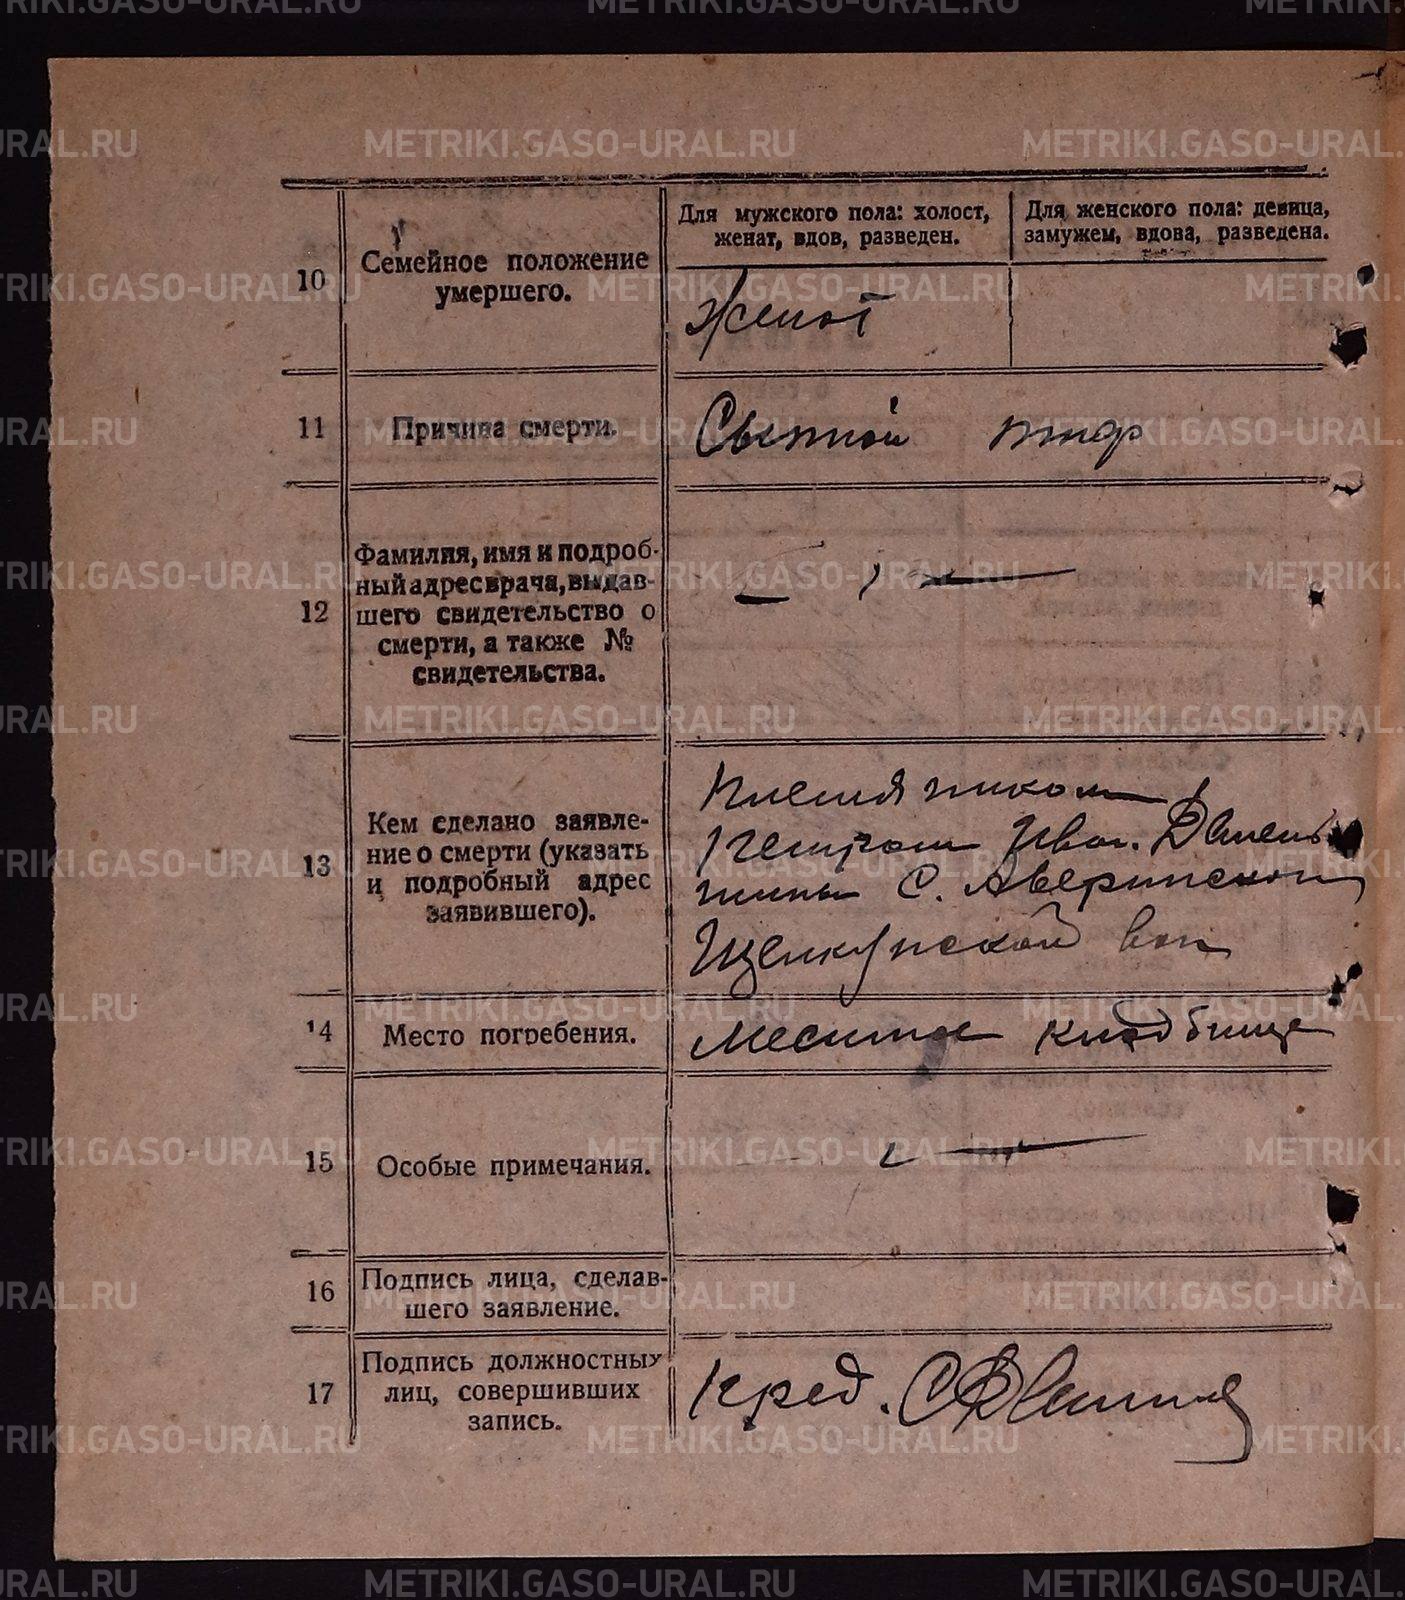 METRIKI.GASO-URAL.RU
Для мужского пола: холост,
женат, вдов, разведен.
Для женского пола: девица,
замужем, вдова, разведена.
10
Семейное положение
умершего.
Женат
11
Причина смерти.
Сыпной тиф
12
Фамилия, имя и подроб-
ный адрес врача, выдав-
шего свидетельство о
смерти, а также №
свидетельства.
13
Кем сделано заявле-
ние о смерти (указать
и подробный адрес
заявившего).
Племянником
Петром Иван.
с. Аверинское
Щелкунской вол
14
Место погребения.
Местное кладбище
15
Особые примечания.
16
Подпись лица, сделав-
шего заявление.
17
Подпись должностных
лиц, совершивших
запись.
Пред.